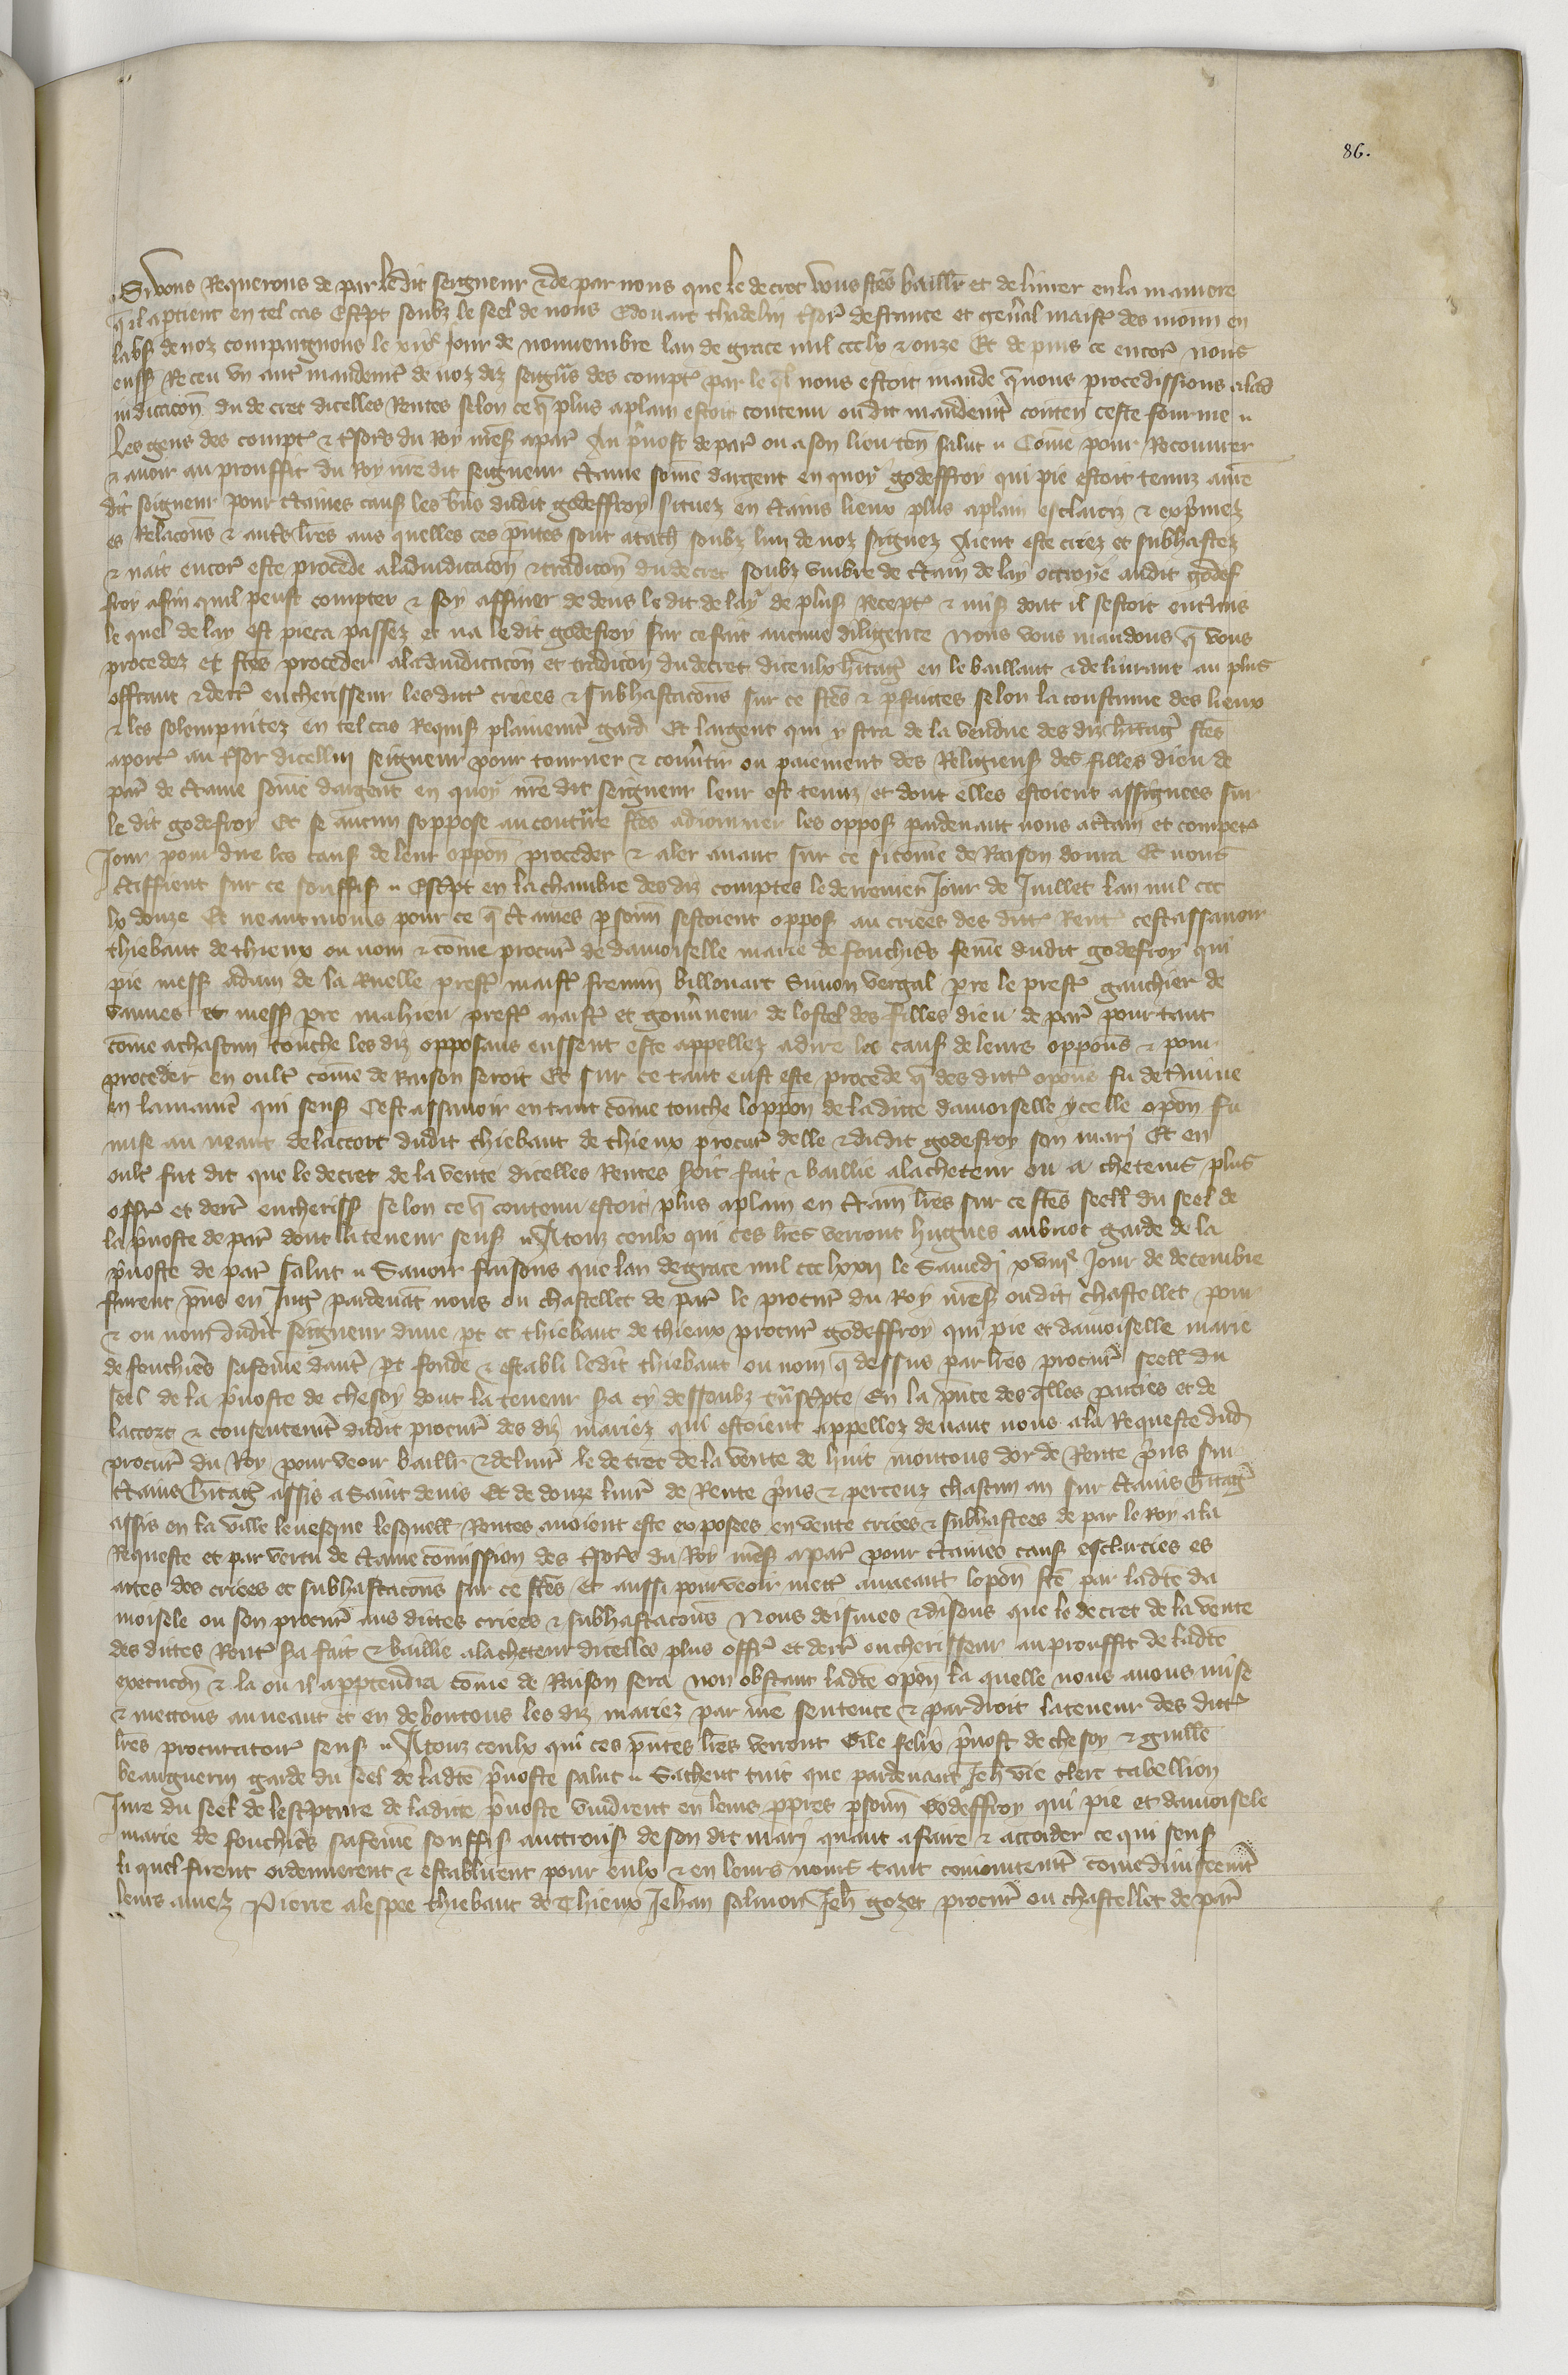 86.
Si vous Requerons de par ledit seigneur & de par nous que le decret vous fctes baillr et delivrer en la maniere
ql aptient en tel cas Escript soubz le seel de nous Edouart thadelin tsor de france et genal maist des monn en
labs de noz compaignons le xiie jour de novembre lan de grace mil ccclx & onze Et depuis ce encor nous
euss Receu un aut mandemt de noz diz seigns des compt par le ql nous estoit mande q nous procedissions alad
iudicacon du decret dicelles Rentes selon ce q plus aplain estoit contenu oudit mandemt conten ceste fourme
Les gens des compt & tsors du Roy nres a par Au pvost de par ou a son lieuten salut Come pour Recouvrer
& avoir au prouffit du Roy nre dit seigneur ctaine some dargent en quoy godeffroy qui pie estoit tenuz a nre
dit seigneur pour ctaines caus les bns dudit godeffroy situez en ctains lieux plus aplain esclarciz & exprimez
es Relacons & auts lres aus quelles ces pntes sont atach soubz lun de noz signez Aient este criez et subhastez
& nait encor este procede aladiudicacon & tradicon du decret soubz umbre de ctain delay octroye audit godef
froy afin quil peust compter & soy affiner dedens ledit delay de plus Recept & mis dont il sestoit entmis
le quel delay est pieca passez et na ledit godefroy sur ce fait aucune diligence Nous vous mandons q vous
procedez et fctes proceder aladiudicacon et tradicon du decret diceulx hitag en le baillant & delivrant au plus
offrant & derr encherisseur lesdict criees & subhastacons sur ce fctes & pfaictes selon la coustume des lieux
& les solempnitez en tel cas Requis plainemt gard Et largent qui ystra de la vendue des diz hitag fctes
aport au tsor dicellui seigneur pour tourner & convtir ou paiement des Religieus des filles dieu de
par de ctaine some dargent en quoy nre dit seigneur leur est tenuz et dont elles estoient assignees sur
le dit godefroy Et se aucun soppose au contraire fctes adiourner les oppos pardevant nous a ctain et compet
Jour pour dire les caus de leur oppon proceder & aler avant sur ce si come de Raison devra Et nous
ctiffient sur ce souffis Escript en la chambre des diz comptes le derrenier Jour de Juillet lan mil ccc
lx douze Et neantmoins pour ce q ctaines psonn sestoient oppos au criees des dict Rent cestassavoir
thiebaut de thieux ou nom & come procur de damoiselle marie de fouchies feme dudit godefroy qui
pie mess Adam de la Ruelle prest maist fremin billouart Simon vergal pre le prest gauchier de
vannes et mess pre mahieu prest maist et gouvneur de lostel des filles dieu de par pour tant
come a chascun touche les diz opposans eussent este appellez a dire les caus de leurs oppons & pour
proceder en oult come de Raison seroit Et sur ce tant eust este procede q des dict opons fu detmine
en la manie qui sens Cestassavoir en tant come touche loppon de la dicte damoiselle ycelle opon fu
mise au neant de laccort dudit thiebaut de thieux procur delle & dudit godefroy son mari Et en
oult fut dit que le decret de la vente dicelles Rentes soit fait & baillie a lacheteur ou acheteurs plus
offr et derr encheriss selon ce q contenu estoit plus aplain en ctain lres sur ce fctes seell du seel de
la pvoste de par dont la teneur sens A touz ceulx qui ces lres verront hugues aubriot garde de la
pvoste de par salut Savoir faisons que lan de grace mil ccclxxii le Samedi xviiie Jour de decembre
furent pns en Jug pardevat nous ou chastellet de par le procur du Roy nres oudit chastellet pour
& ou nom dudit seigneur dune pt et thiebaut de thieux procur godeffroy qui pie et damoiselle marie
de fouchies sa feme daut pt fonde & establi ledit thiebaut ou nom q dessus par lres procur seell du
seel de la pvoste de chesoy dont la teneur sa cy dessoubz tnscripte En la pnce des qlles parties et de
laccort & consentemt dudit procur des diz mariez qui estoient appellez devant nous a la Requeste dud
procur du Roy pour veoir baillr & delivr le decret de la vente de huit moutons dor de Rente pns sur
ctains hitag assis a Saint denis Et de douze livr de Rente pns & perceuz chascun an sur ctains hitag
assis en la ville levesque lesquell Rentes avoient este exposees en vente criees & subhastees de par le Roy a la
Requeste et par vertu de ctaine comission des tsors du Roy nres a par pour ctaines caus esclarcies es
actes des criees et subhastacons sur ce fctes Et aussi pour veoir mett au neant lopon fcte par ladte da
moisele ou son procur aus dictes criees & subhastacons Nous deismes & disons que le decret de la vente
des dictes Rent sa fait & baillie a lacheteur dicelles plus offr et derr encherisseur au prouffit de ladte
execucon & la ou il apptendra come de Raison sera non obstant ladte opon la quelle nous avons mise
& mettons au neant et en deboutons les diz mariez par nre sentence & par droit la teneur des dict
lres procuratoir sens A touz ceulx qui ces pntes lres verront Gile felix pvost de chesoy & guille
beauguerin garde du seel de ladte pvoste salut Sachent tuit que pardevant Jeh vie clerc tabellion
Jure du seel de lescripture de ladicte pvoste vindrent en leurs ppres psonn Godeffroy qui pie et damoisele
marie de fouchies sa feme souffis auctrous de son dit mari quant a faire & accorder ce qui sens
li quel firent ordennerent & establirent pour eulx & en leurs noms tant conionctemt come divisemt
leurs amez Pierre alespee thiebaut de Thieux Jehan salmon Jeh gozet procur ou chastellet de par